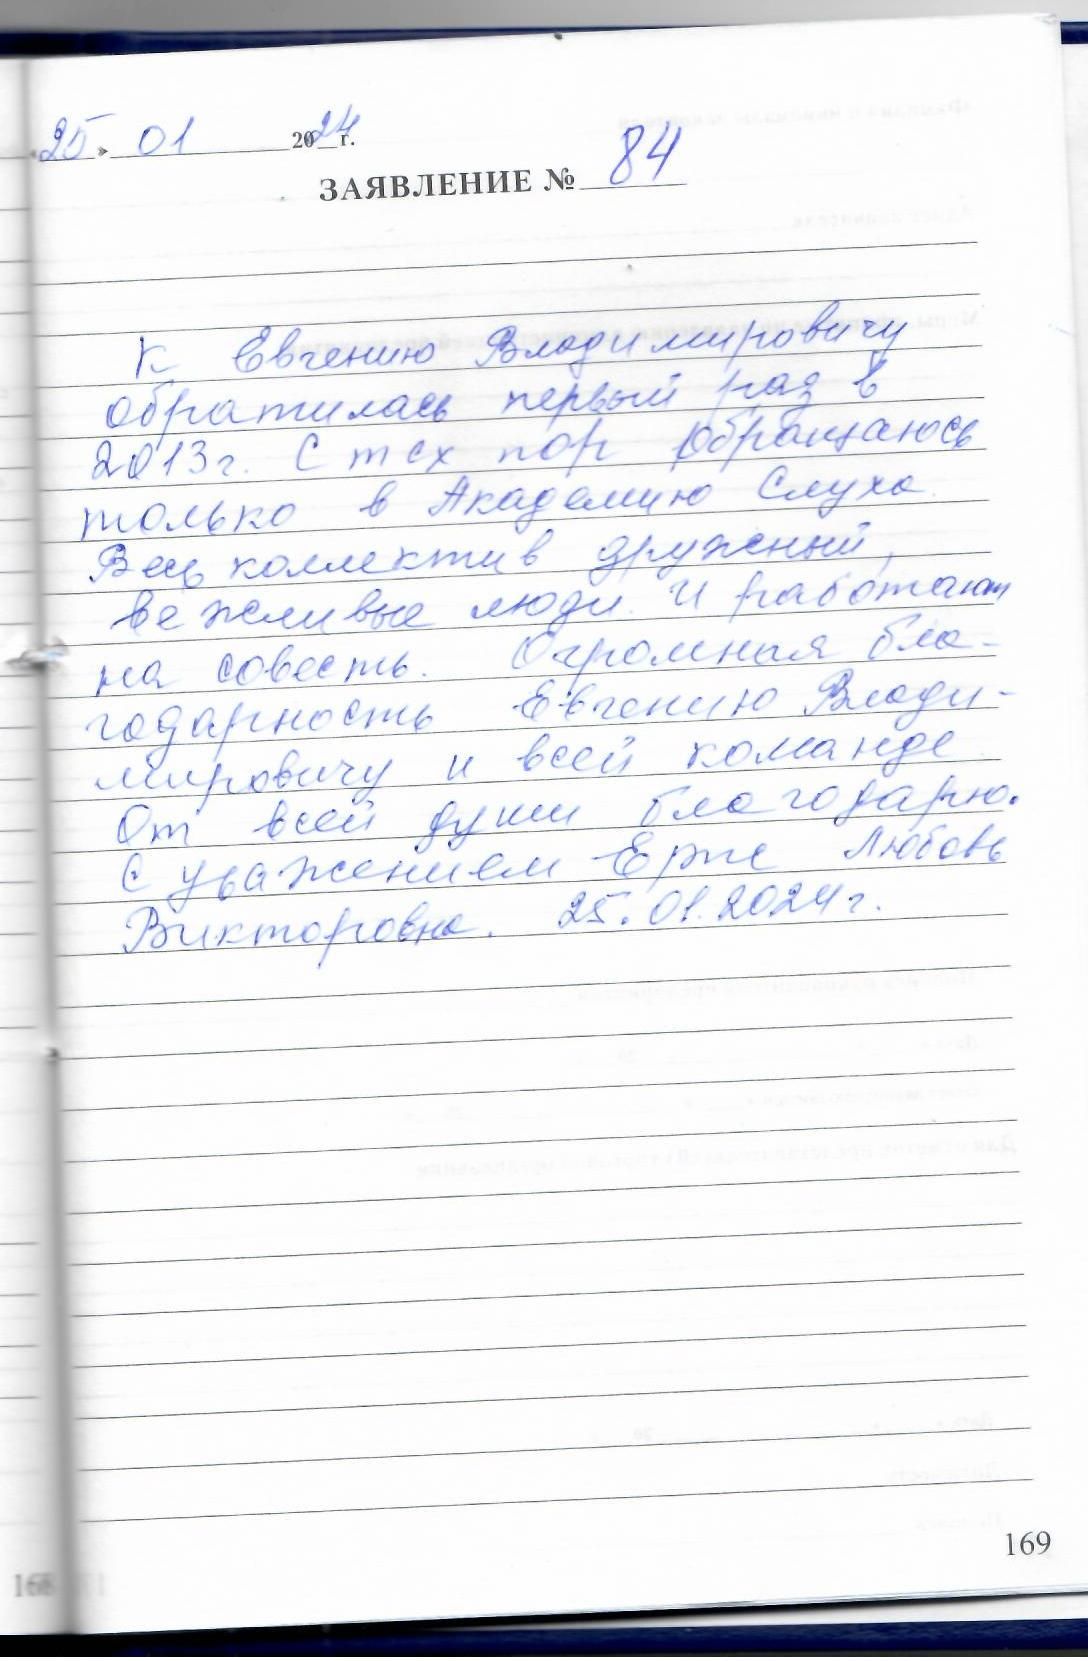 «25» 01 2024 г.
ЗАЯВЛЕНИЕ № 84
К Евгению Владимировичу
обратилась первый раз в
2013г. С тех пор обращаюсь
только в Академию Слуха.
Весь коллектив дружный,
вежливые люди. И работают
на совесть. Огромная бла-
годарность Евгению Влади-
мировичу и всей команде
От всей души благодарю.
С уважением Любовь
Викторовна. 25.01.2024г.
169
168